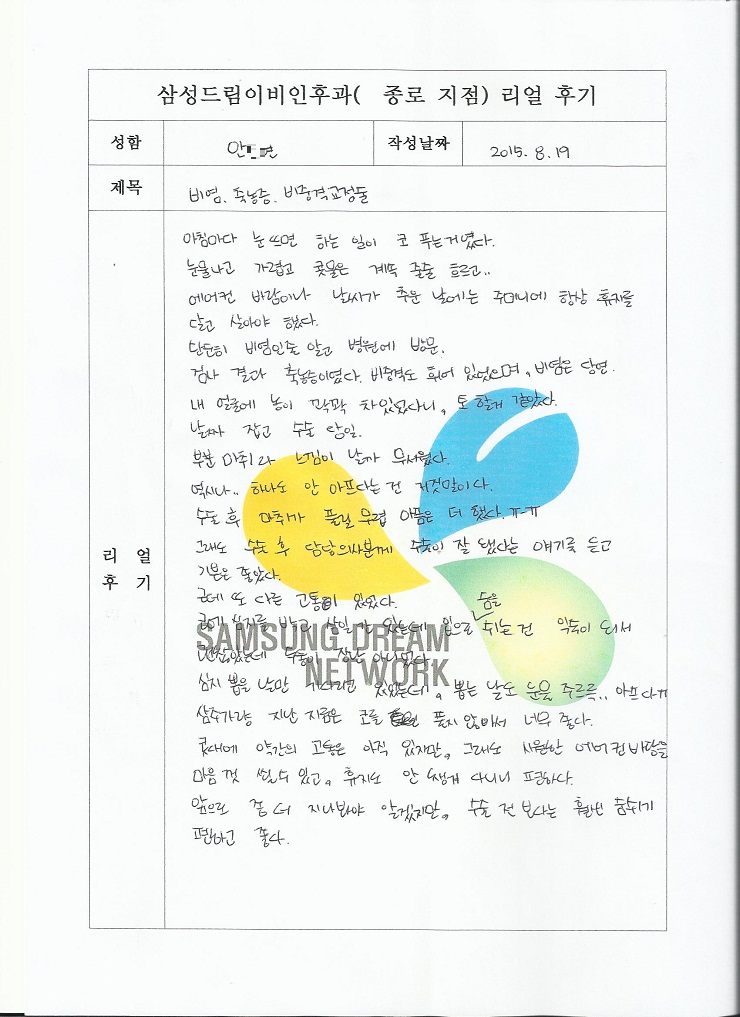 삼성드림이비인후과( 종로 지점) 리얼 후기
성함 안 작성날짜 2015. 8. 19
제목 비염, 축농증, 비중격교정술
리 얼 후 기
아침마다 눈 뜨면 하는 일이 코 푸는거였다.
눈물나고 가렵고 콧물은 계속 줄줄 흐르고..
에어컨 바람이나 날씨가 추운 날에는 주머니에 항상 휴지를
달고 살아야 했다.
단순히 비염인줄 알고 병원에 방문.
검사 결과 축농증이였다. 비중격도 휘어 있었으며, 비염은 당연.
내 얼굴에 농이 꽉꽉 차있었다니, 토 할거 같았다.
날짜 잡고 수술 당일.
부분 마취라 느낌이 날까 무서웠다.
역시나.. 하나도 안 아프다는 건 거짓말이다.
수술 후 마취가 풀릴 무렵 아픔은 더 했다. ㅠ-ㅠ
그래도 수술 후 담당의사분께 수술이 잘 됐다는 얘기를 듣고
기분은 좋았다.
근데 또 다른 고통이 있었다.
코에 심지를 박고 삼일 간 있는데 입으로 숨을 쉬는 건 익숙이 되서
괜찮았는데 두통이 장난 아니였다.
심지 뽑을 날만 기다리고 있었는데, 뽑는 날도 눈물 주르륵.. 아프다ㅠ
삼주가량 지난 지금은 코를 풀지 않아서 너무 좋다.
콧대에 약간의 고통은 아직 있지만, 그래도 시원한 에어컨바람을
마음 껏 쐴수 있고, 휴지도 안 챙겨 다니니 편하다.
앞으로 좀 더 지나봐야 알겠지만, 수술 전 보다는 훨씬 숨쉬기
편하고 좋다.
SAMSUNG DREAM
NETWORK